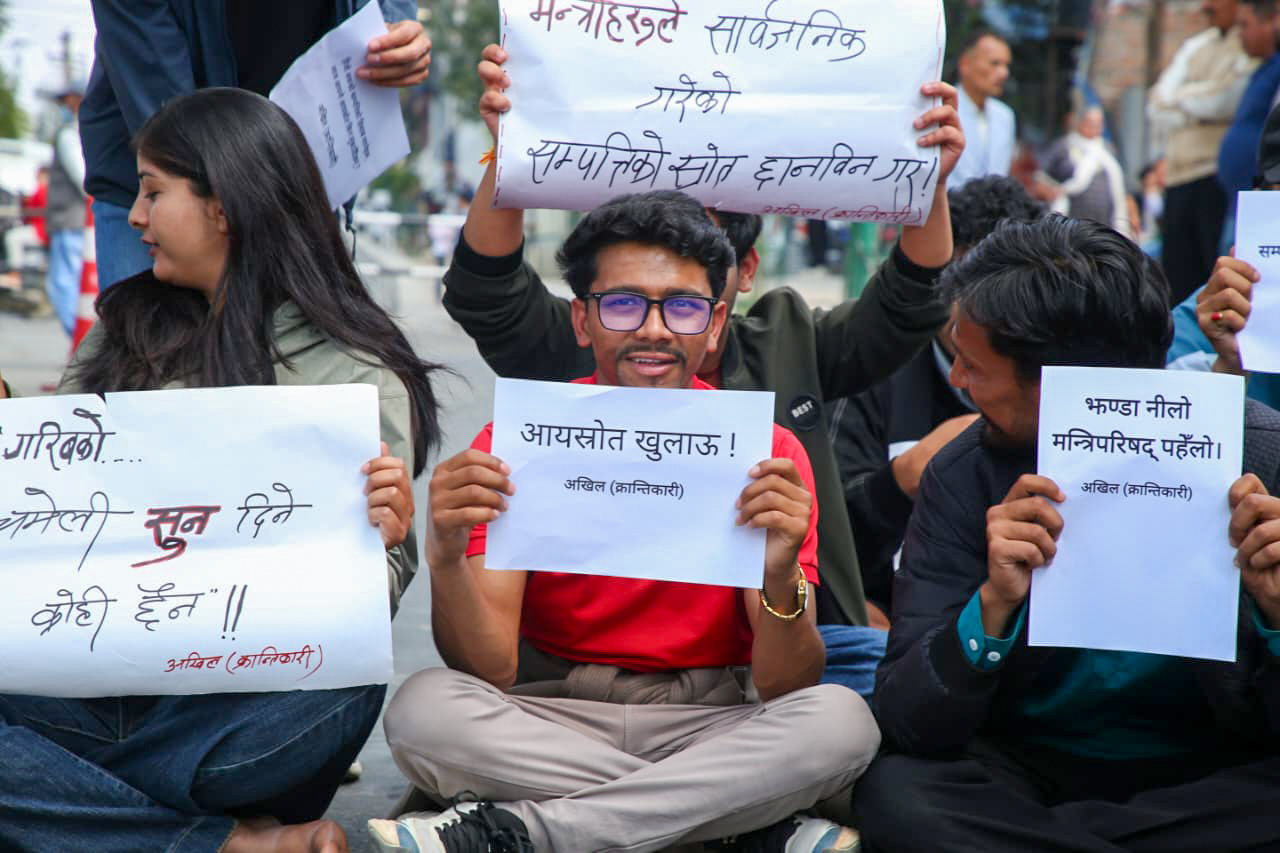 मन्त्रीहरुले सार्वजनिक
गरेको
सम्पत्तिको स्रोत छानविन गर!
अखिल (क्रान्तिकारी)
गरिबको....
चमेली सुन दिने
कोही छैन" !!
अखिल (क्रान्तिकारी)
आयस्रोत खुलाऊ !
अखिल (क्रान्तिकारी)
BEST
झण्डा नीलो
मन्त्रिपरिषद् पहेँलो।
अखिल (क्रान्तिकारी)
सम्प